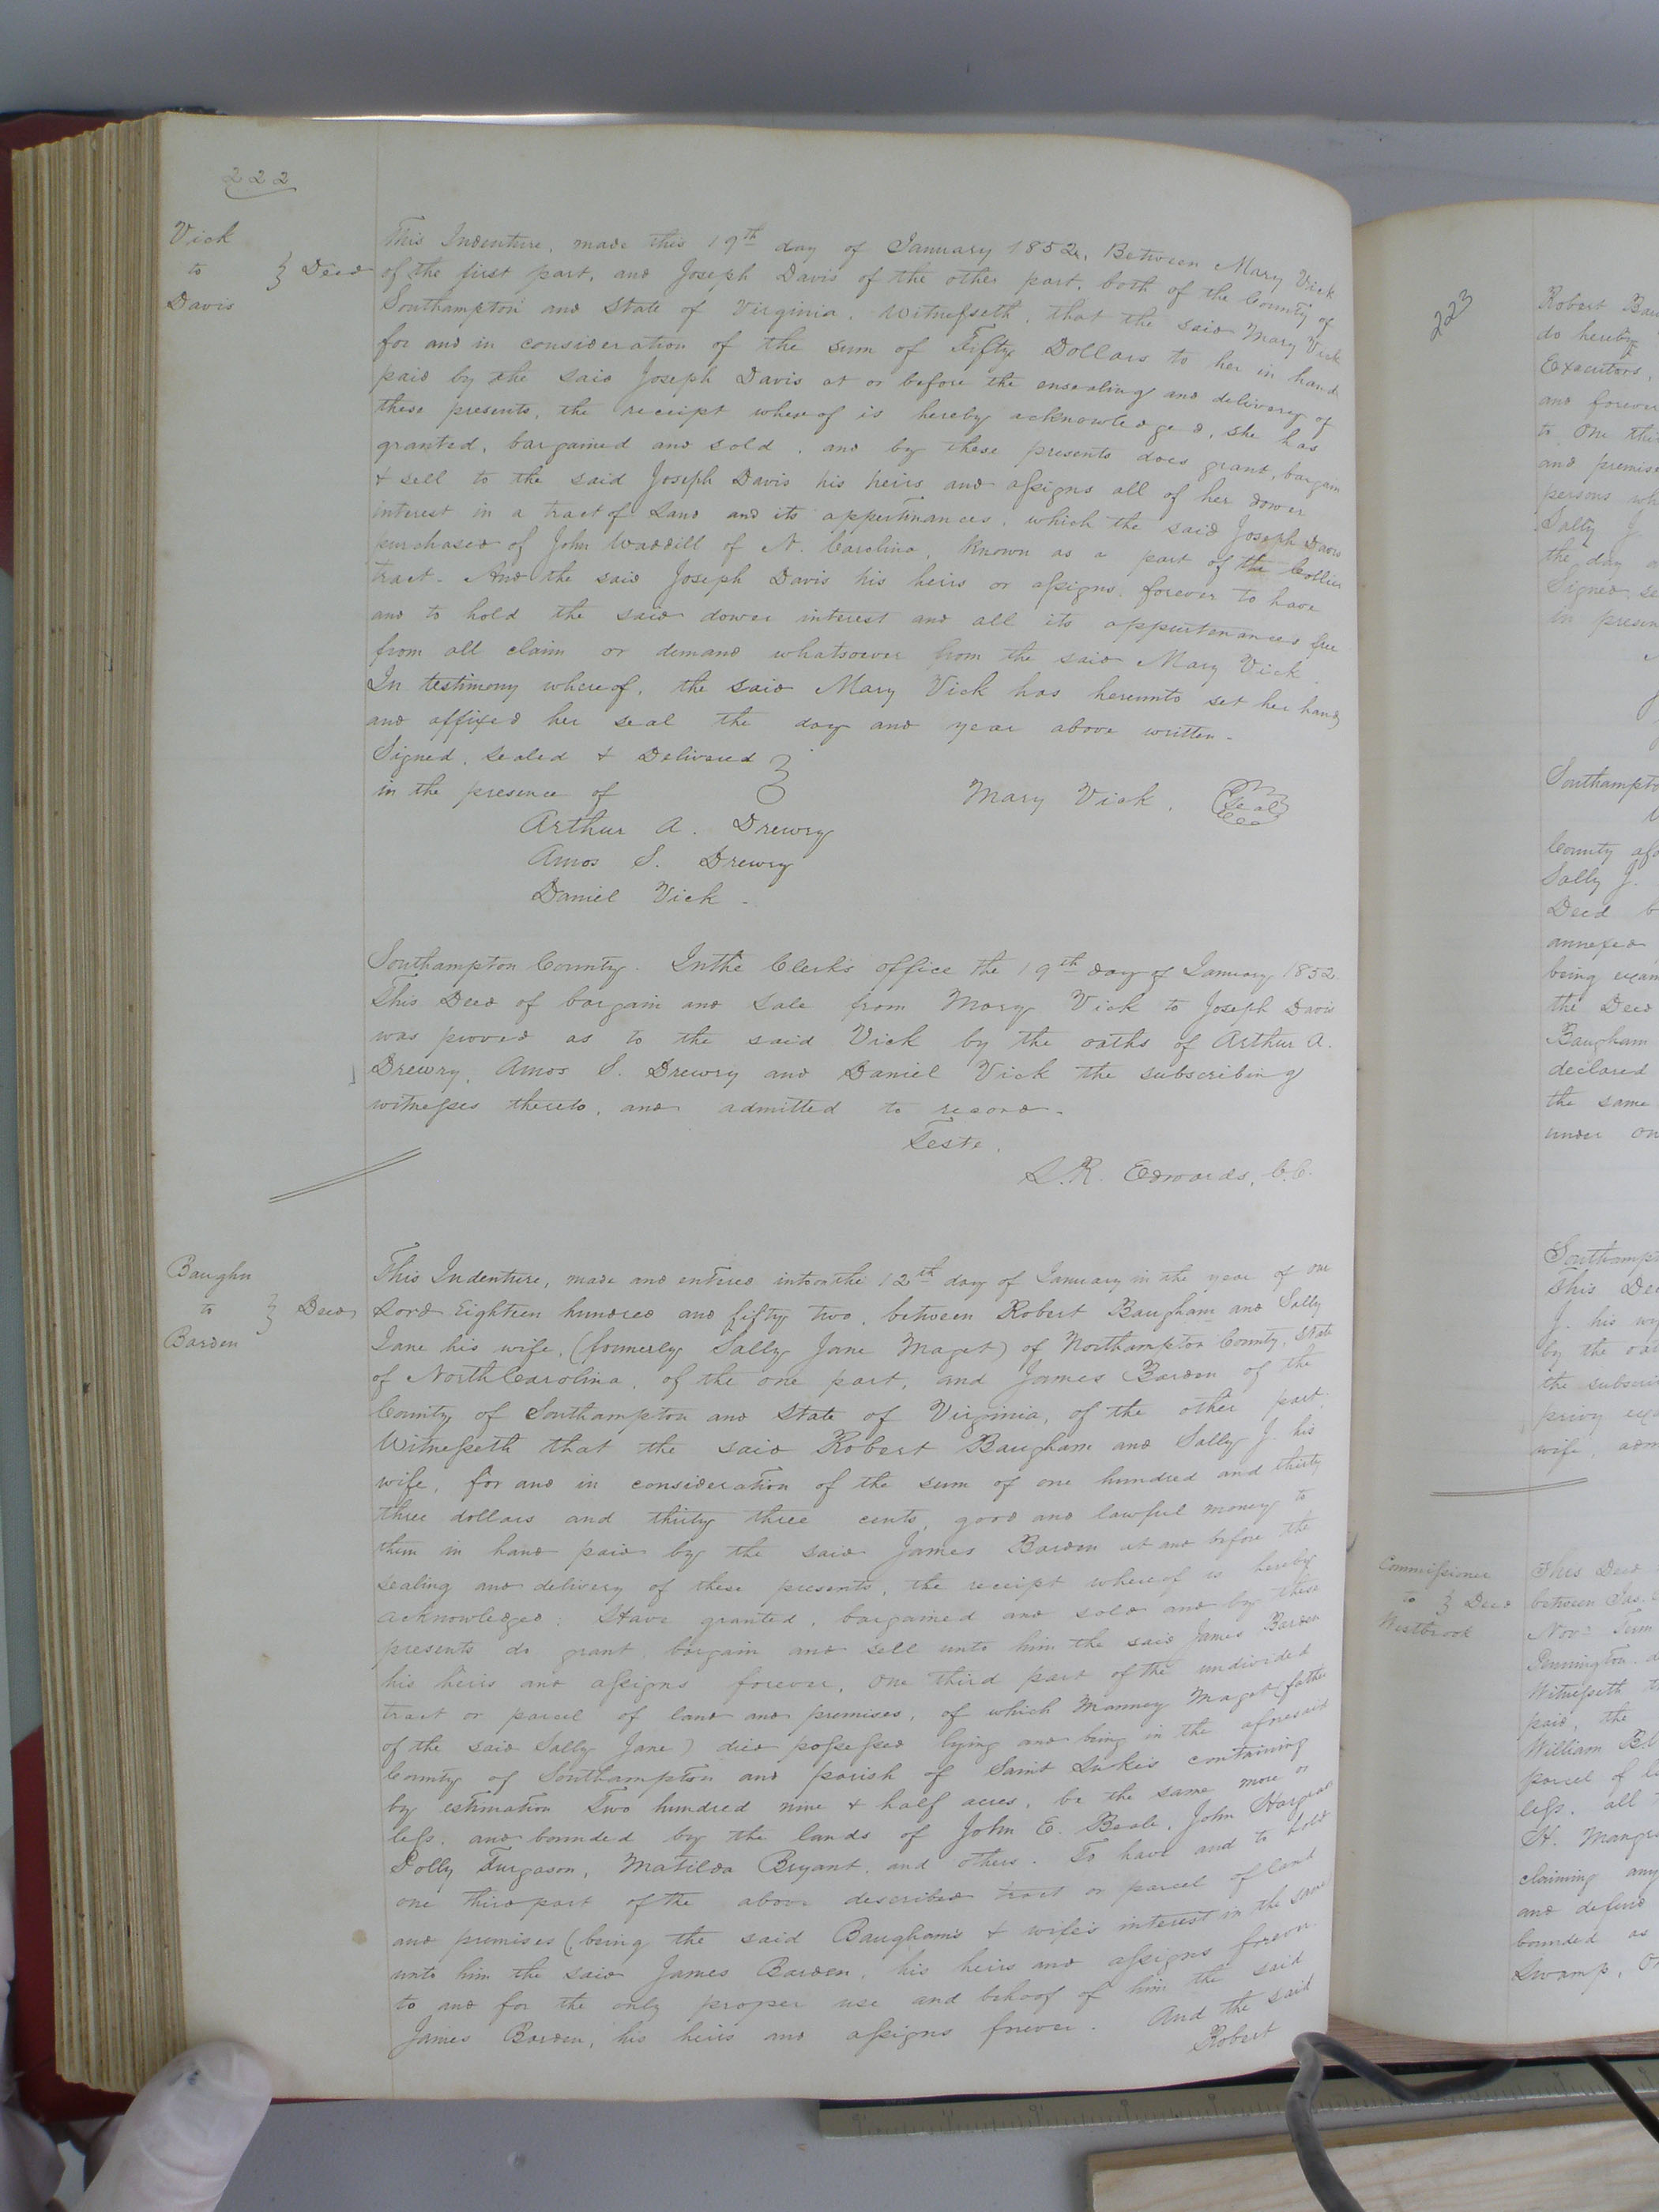 222
Vick
to } Deed
Davis
This Indenture, made this 19th day of January 1852, Between Mary Vick
of the first part, and Joseph Davis of the other part, both of the County of
Southampton and State of Virginia. Witnesseth, that the said Mary Vick
for and in consideration of the sum of Fifty Dollars to her in hand
paid by the said Joseph Davis at or before the ensealing and delivery of
these presents, the receipt whereof is hereby acknowledged, she has
granted, bargained and sold, and by these presents does grant, bargain
& sell to the said Joseph Davis his heirs and assigns all of her dower
interest in a tract of Land and its appertinances, which the said Joseph Davis
purchased of John Waddill of N. Carolina, known as a part of the Collier
tract. And the said Joseph Davis his heirs or assigns, forever to have
and to hold the said dower interest and all its appurtenances free
from all claim or demand whatsoever from the said Mary Vick.
In testimony whereof, the said Mary Vick has hereunto set her hand
and affixed her seal the day and year above written.
Signed, sealed & Delivered }
in the presence of
Mary Vick. Seal
Arthur A. Drewry
Amos S. Drewry
Daniel Vick.
Southampton County. In the Clerk's office the 19th day of January 1852
This Deed of bargain and sale from Mary Vick to Joseph Davis
was proved as to the said Vick by the oaths of Arthur A.
Drewry, Amos S. Drewry and Daniel Vick the subscribing
witnesses thereto, and admitted to record.
Teste.
L.R. Edwards, C.C.
Baughn
to } Deed
Barden
This Indenture, made and entered into on the 12th day of January in the year of our
Lord Eighteen hundred and fifty two, between Robert Baugham and Sally
Jane his wife, (formerly Sally Jane Maget) of Northampton County, State
of North Carolina, of the one part, and James Barden of the
County of Southampton and State of Virginia, of the other part:
Witnesseth that the said Robert Baugham and Sally J. his
wife, for and in consideration of the sum of one hundred and thirty
three dollars and thirty three cents, good and lawful money to
them in hand paid by the said James Barden at and before the
sealing and delivery of these presents, the receipt whereof is hereby
acknowledged: Have granted, bargained and sold and by these
presents do grant, bargain and sell unto him the said James Barden
his heirs and assigns forever, one third part of the undivided
tract or parcel of land and premises, of which Manney Maget (father
of the said Sally Jane) died possessed lying and being in the aforesaid
County of Southampton and parish of Saint Luke's containing
by estimation Two hundred nine & half acres, be the same more or
less, and bounded by the lands of John E. Beale, John
Polly Furgason, Matilda Bryant, and others. To have and to hold
one third part of the above described tract or parcel of land
and premises (being the said Baugham's & wife's interest in the same)
unto him the said James Barden, his heirs and assigns forever.
to and for the only proper use and behoof of him the said
James Barden, his heirs and assigns forever. And the said
Robert
223
Robert
do hereby
Executors,
and forever
to one
and premise
persons
Sally J.
the day
Signed,
in
Southampto
County
Sally J.
Deed
annexed
being
the Deed
Baugham
declared
the same
under
Southamp
This
J. his
by the
the
privy
wife,
Commissioner
to } Deed
Westbrook
This Deed
between
Nov: Term
Pennington
Witnesseth
paid, the
William
parcel of
less, all
H.
claiming any
and defend
bounded as
Swamp,